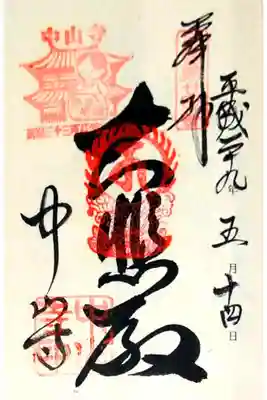 平成二十九年五月十四日
奉拝
大悲殿
中山寺
中山寺